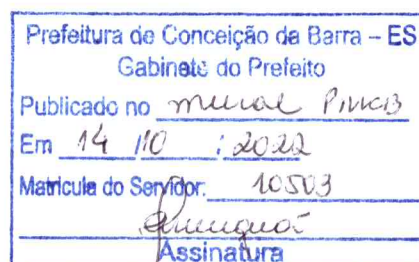 Prefeitura de Conceição da Barra – ES
Gabinete do Prefeito
Publicado no mural PMCB
Em 14 /10 / 2022
Matricula do Servidor: 10503
Assinatura